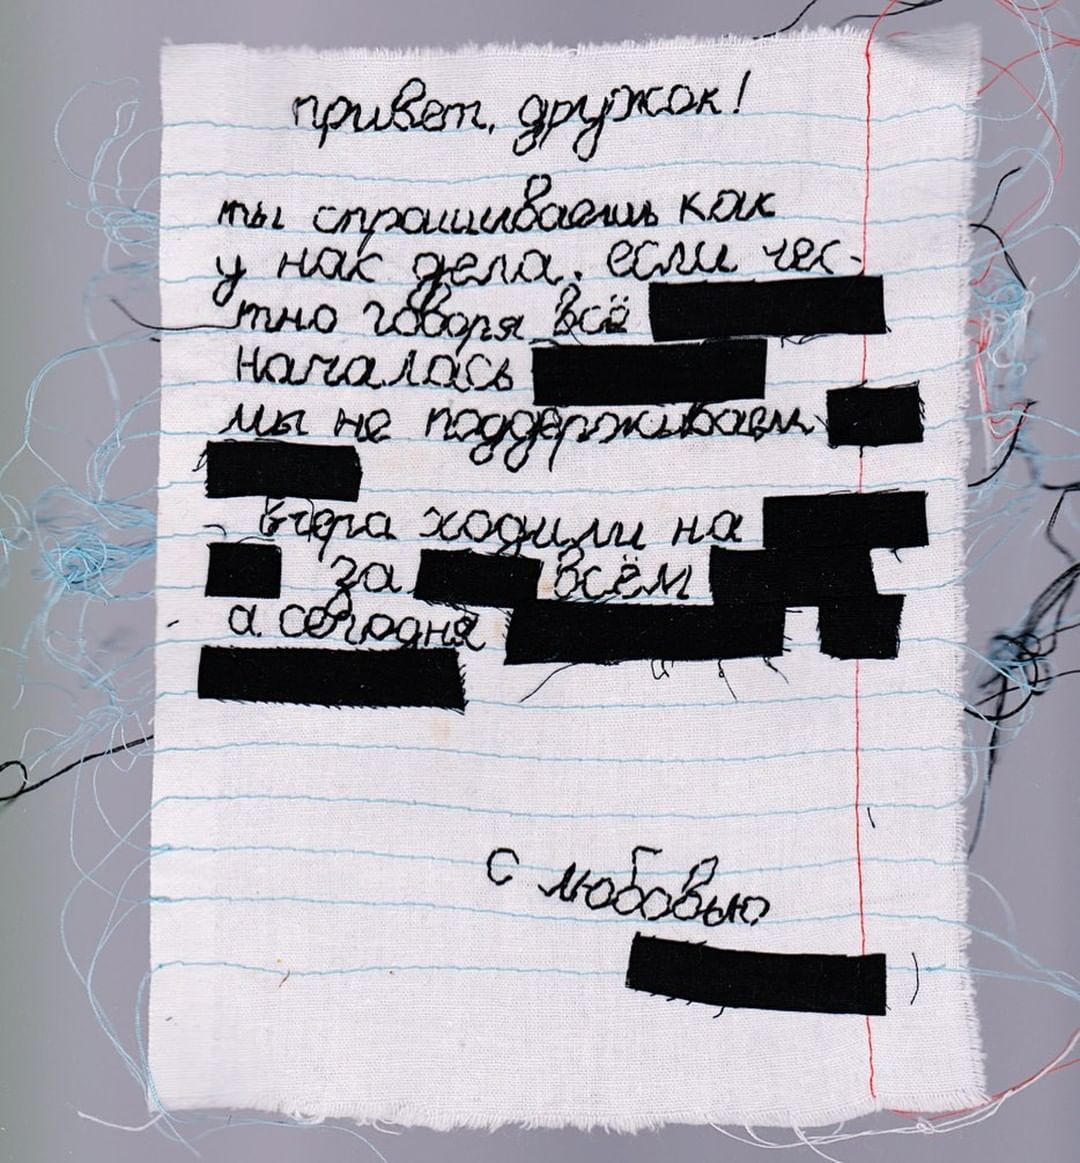 привет, дружок!
ты спрашиваешь как
у нас дела. если чес-
тно говоря всё
началась
мы не поддерживаем
вчера ходили на
за всём
а сегодня
С любовью